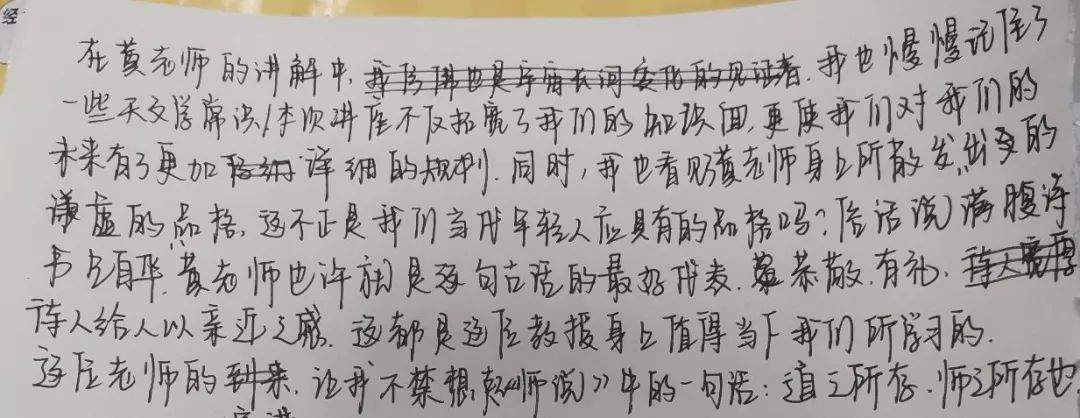 经
在黄老师的讲解中,我仿佛也是宇宙长河变化的见证者.我也慢慢记住了
一些天文学常识!本次讲座不仅拓宽了我们的知识面,更使我们对我们的
未来有了更加详细的规划.同时,我也看见黄老师身上所散发出的
谦虚的品格,这不正是我们当代年轻人应具有的品格吗?俗话说满腹诗
书气自华.黄老师也许就是这句古话的最好代表.恭敬.有礼.待人宽厚
待人给人以亲近之感.这都是这位教授身上值得当下我们所学习的.
这位老师的到来.让我不禁想起《师说》中的一句话:道之所存.师之所存也